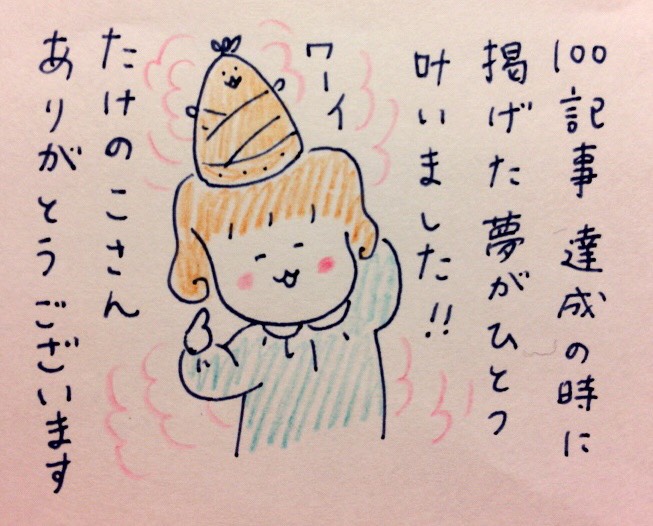 100記事達成の時に
掲げた夢がひとつ
叶いました!!
ワーイ
たけのこさん
ありがとうございます